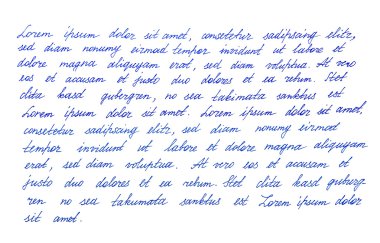 Lorem ipsum dolor sit amet, consetetur sadipscing elitr,
sed diam nonumy eirmod tempor invidunt ut labore et
dolore magna aliquyam erat, sed diam voluptua. At vero
eos et accusam et justo duo dolores et ea rebum. Stet
clita kasd gubergren, no sea takimata sanktus est
Lorem ipsum dolor sit amet. Lorem ipsum dolor sit amet,
consetetur sadipscing elitr, sed diam nonumy eirmod
tempor invidunt ut labore et dolore magna aliquyam
erat, sed diam voluptua. At vero eos et accusam et
justo duo dolores et ea rebum. Stet clita kasd guberg
ren no sea takumata sanktus est Lorem ipsum dolor
sit amet.